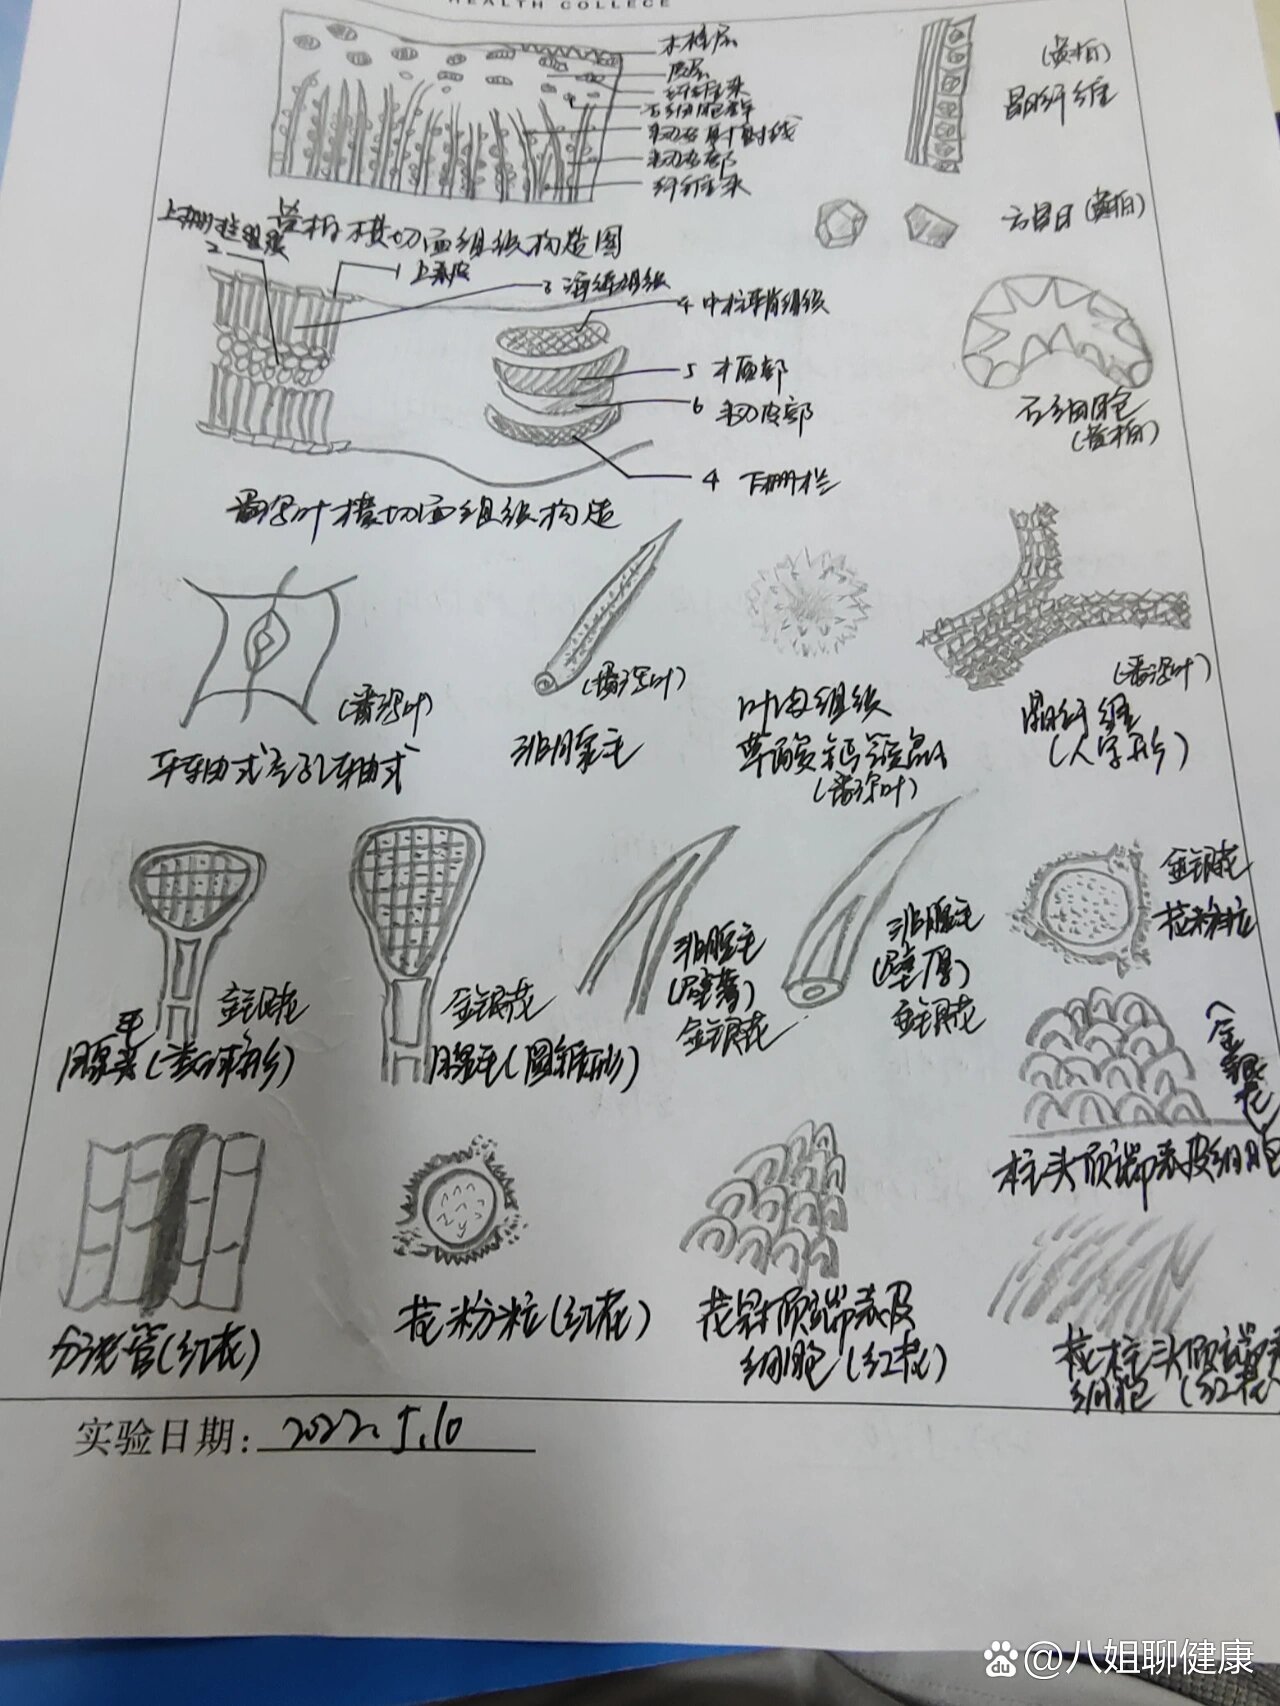 HEALTH COLLEGE
木栓层
皮层
纤维束
石细胞群
韧皮射线
韧皮部
纤维束
黄柏横切面组织构造图
(黄柏)
晶纤维
方晶(黄柏)
上栅栏组织
2
1 上表皮
3 海绵组织
4 中柱鞘组织
5 木质部
6 韧皮部
4 下栅栏
番泻叶横切面组织构造
石细胞
(黄柏)
(番泻叶)
平轴式气孔轴式
(番泻叶)
非腺毛
叶肉组织
草酸钙簇晶
(番泻叶)
(番泻叶)
晶纤维
(人字形)
金银花
腺毛
(类球形)
金银花
腺毛(圆锥形)
非腺毛
(壁薄)
金银花
非腺毛
(壁厚)
金银花
金银花
花粉粒
(金银花)
柱头顶端表皮细胞
分泌管(红花)
花粉粒(红花)
花冠顶端表皮
细胞(红花)
花柱头顶端表
细胞(红花)
实验日期: 2022.5.10
@八姐聊健康